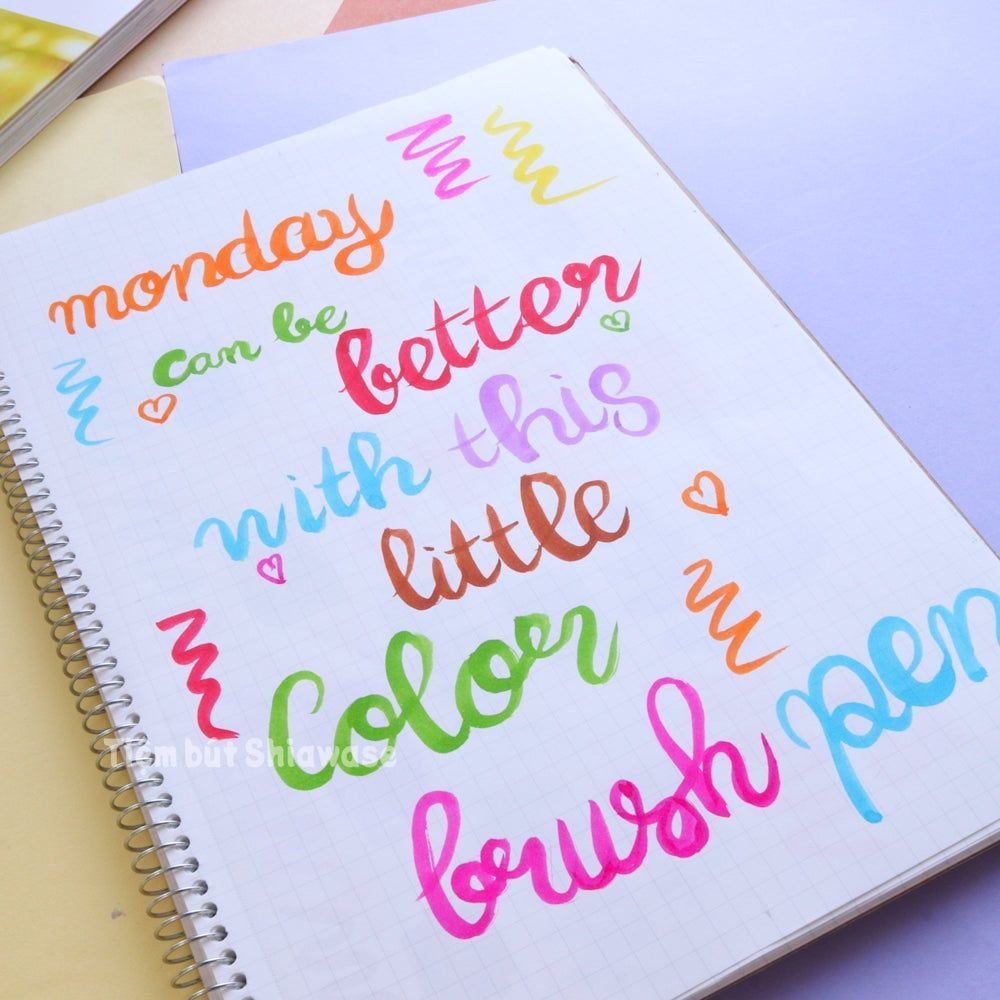 monday
can be better
with this
little
Color
brush pen
Tiệm bút Shiawase